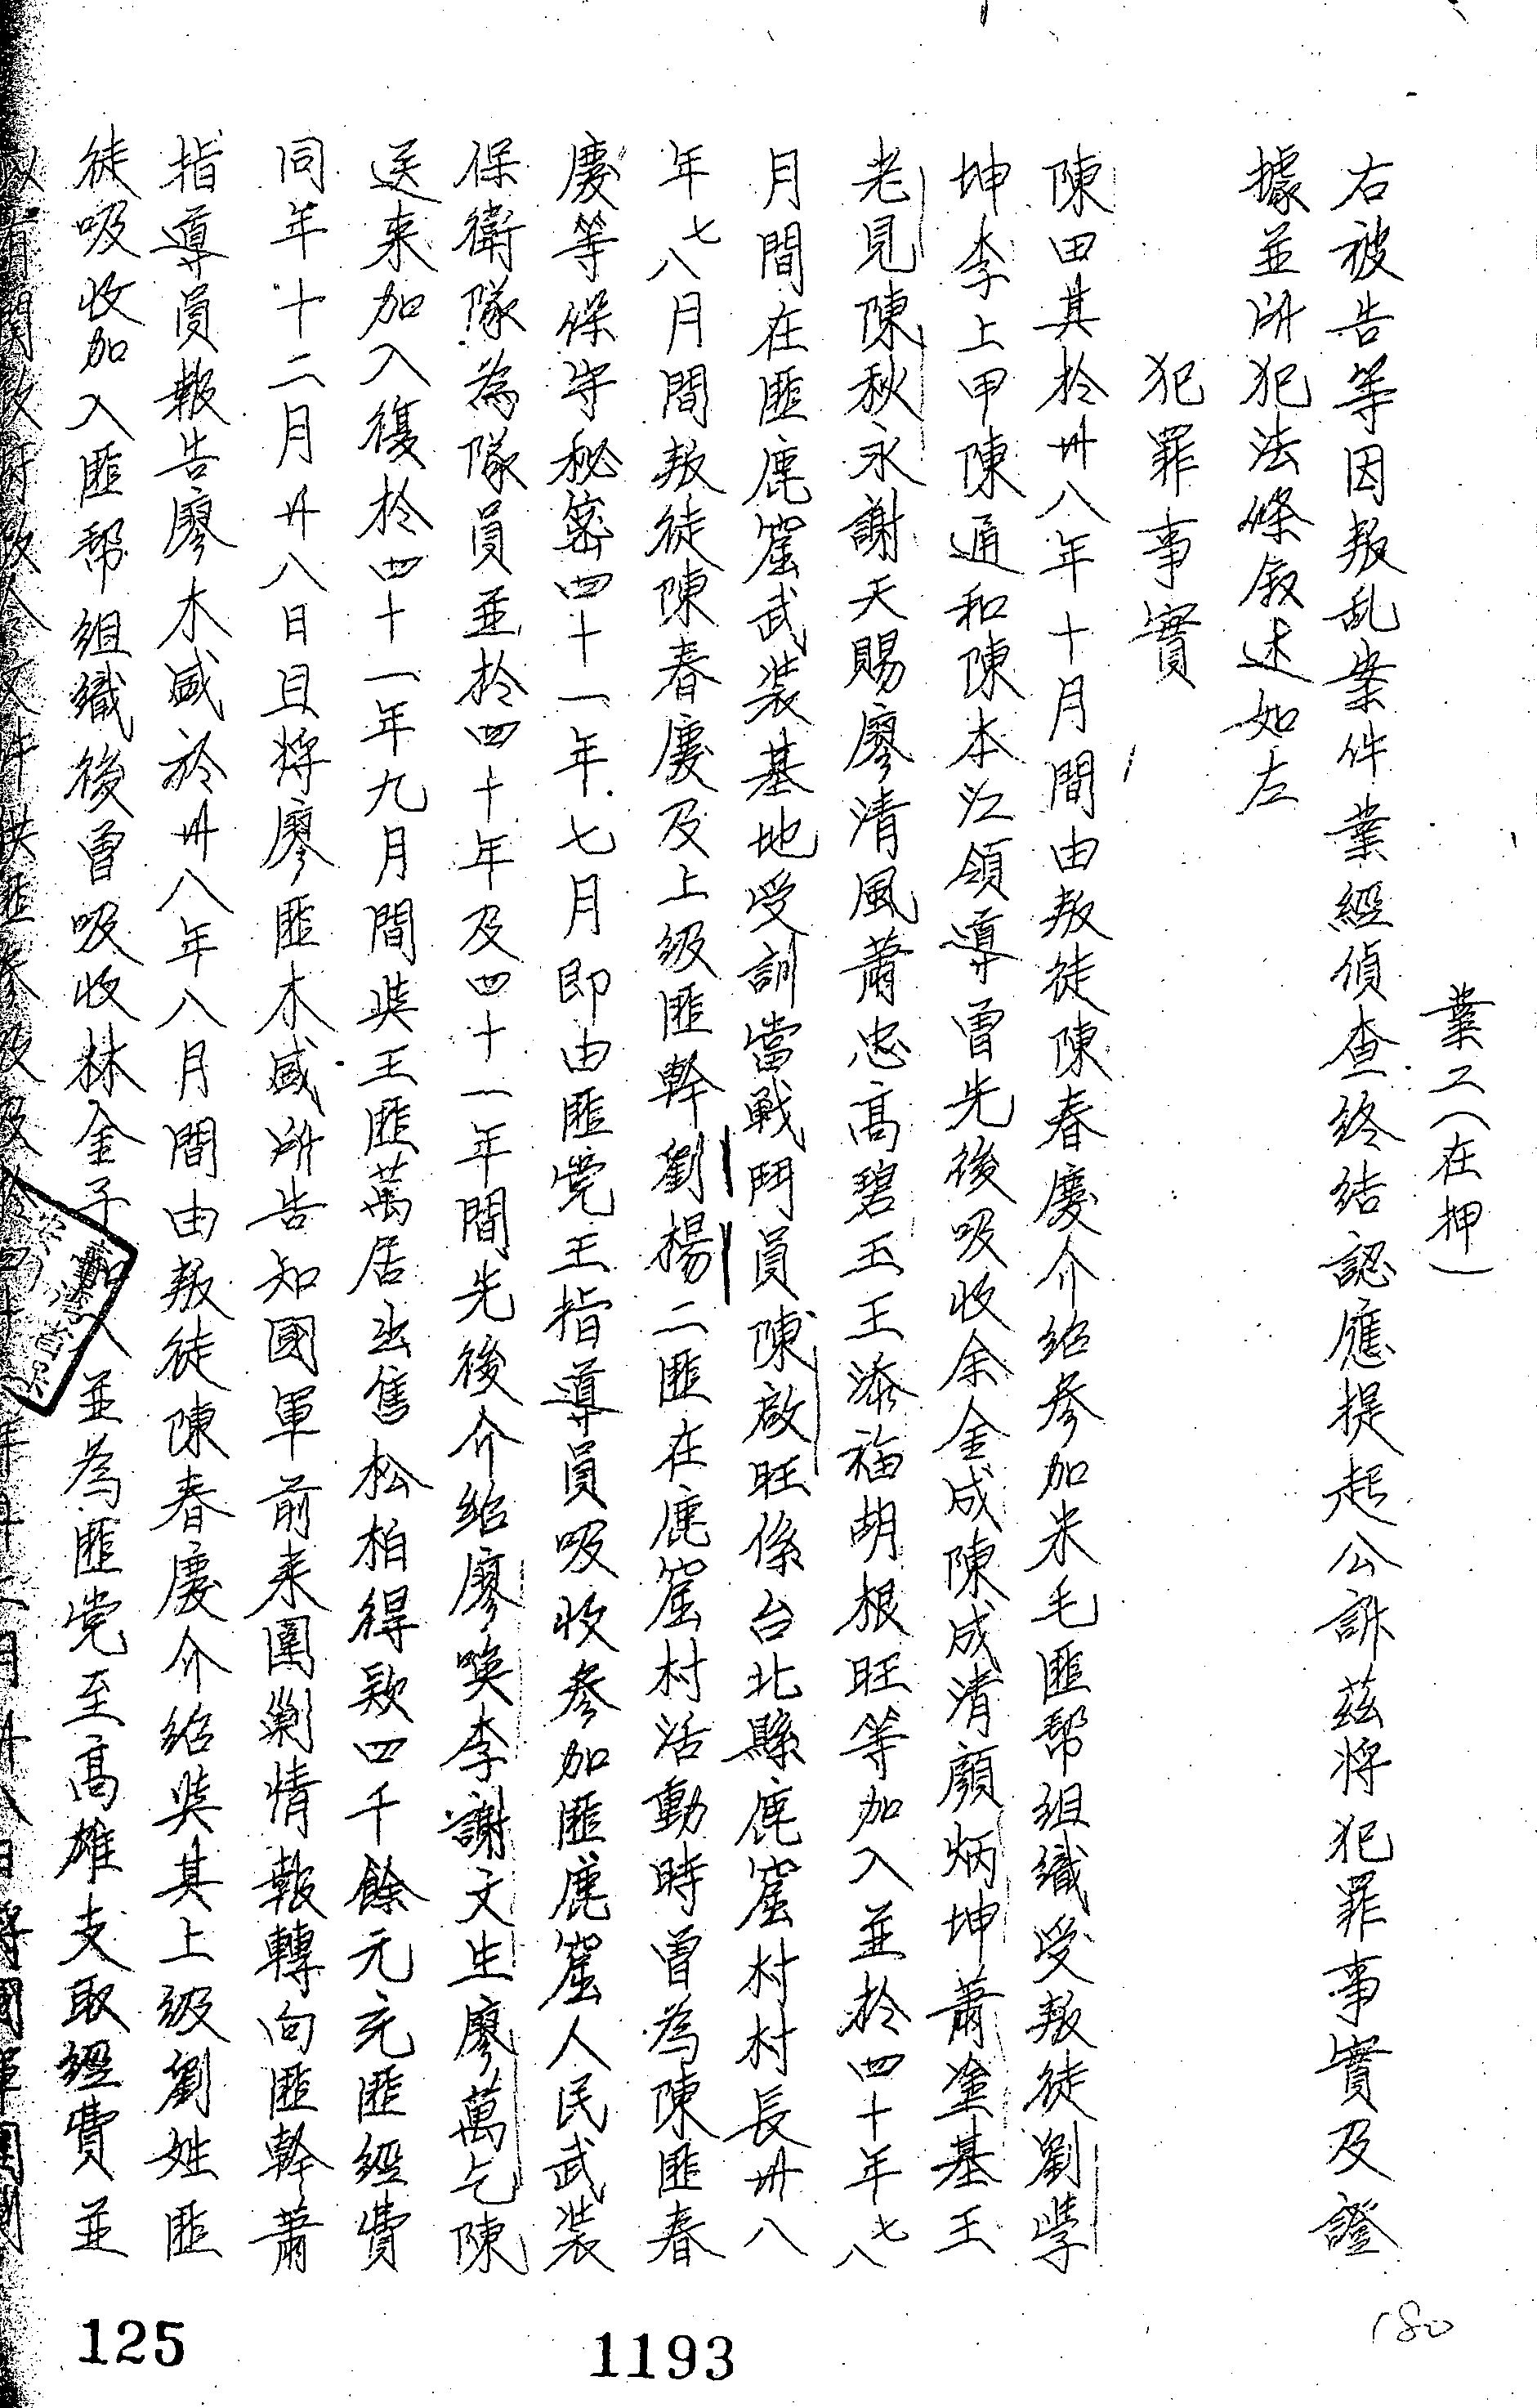 業工(在押)
右被告等因叛乱案件業經偵查終結認應提起公訴茲將犯罪事實及證
據並所犯法條叙述如左
犯罪事實
陳田其於卅八年十月間由叛徒陳春慶介绍參加朱毛匪帮组織受叛徒劉學
坤李上甲陳通和陳本江領導曾先後吸收余金成陳成清顏炳坤蕭塗基王
老見陳秋永謝天賜廖清風蕭忠高碧玉王添福胡根旺等加入並於四十年七八
月間在匪鹿窟武裝基地受訓當戰鬥員陳啟旺係台北縣鹿窟村村長卅八
年七八月間叛徒陳春慶及上级匪幹劉楊二匪在鹿窟村活動時曾為陳匪春
慶等保守秘密四十一年七月即由匪党王指導員吸收參加匪鹿窟人民武裝
保衛隊為隊員並於四十年及四十一年間先後介绍廖 李謝文生廖萬乞陳
送来加入復於四十一年九月間 王匪萬居出售松柏得款四千餘元充匪經費
同年十二月廿八日且将廖匪木盛所告知國軍前来圍剿情報轉向匪幹蕭
指導員報告廖木盛於卅八年八月間由叛徒陳春慶介绍 其上级劉姓匪
徒吸收加入匪帮组織後曾吸收林金子加入並為匪党至高雄支取經費並
125
1193
180